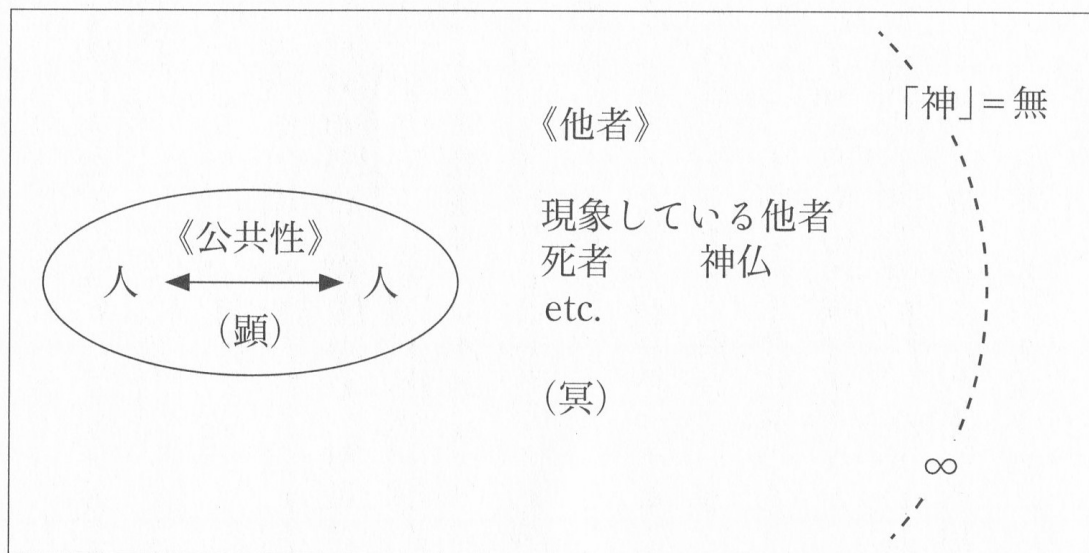 《公共性》
人 人
(顕)
《他者》
現象している他者
死者 神仏
etc.
(冥)
「神」= 無
∞